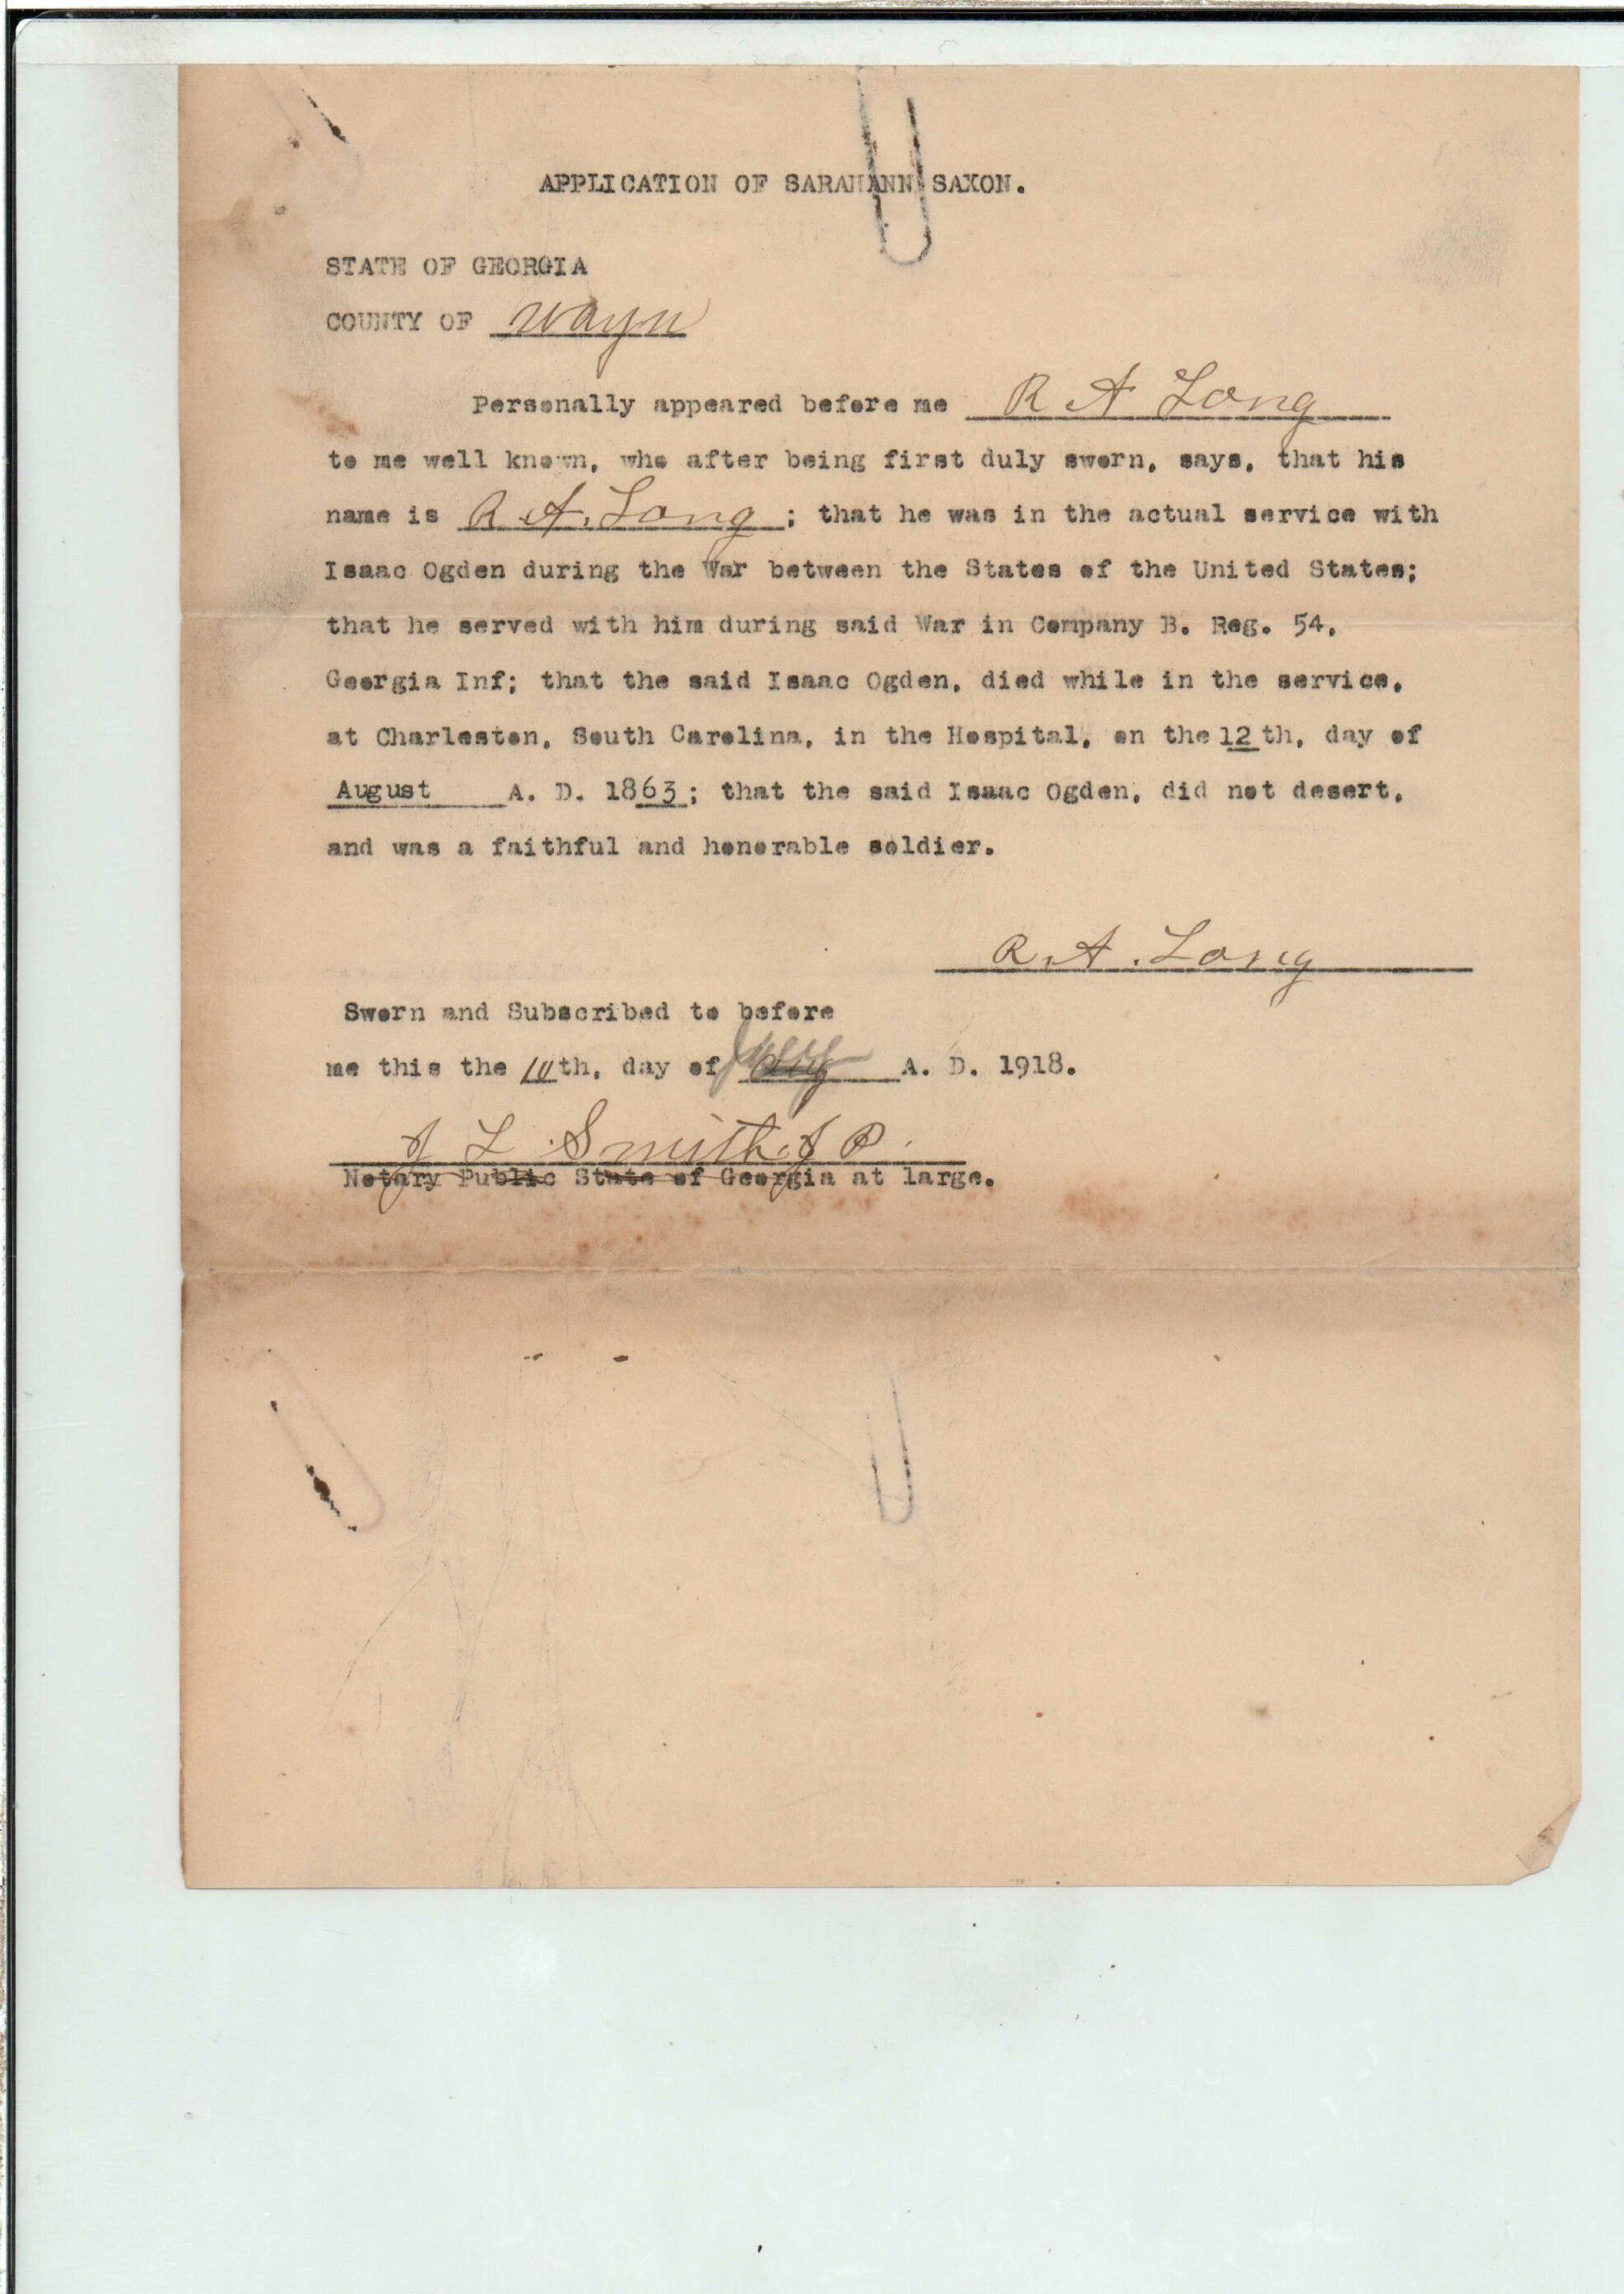 APPLICATION OF SARAHANN SAXON.
STATE OF GEORGIA
COUNTY OF Wayn
Personally appeared before me R A Long
to me well known, who after being first duly sworn, says, that his
name is R. A. Long ; that he was in the actual service with
Isaac Ogden during the War between the States of the United States;
that he served with him during said War in Company B. Reg. 54,
Georgia Inf; that the said Isaac Ogden, died while in the service,
at Charleston, South Carolina, in the Hospital, on the 12 th, day of
August A. D. 1863; that the said Isaac Ogden, did not desert,
and was a faithful and honorable soldier.
R. A. Long
Sworn and Subscribed to before
me this the 10th, day of A. D. 1918.
J L Smith J P.
Notary Public State of Georgia at large.